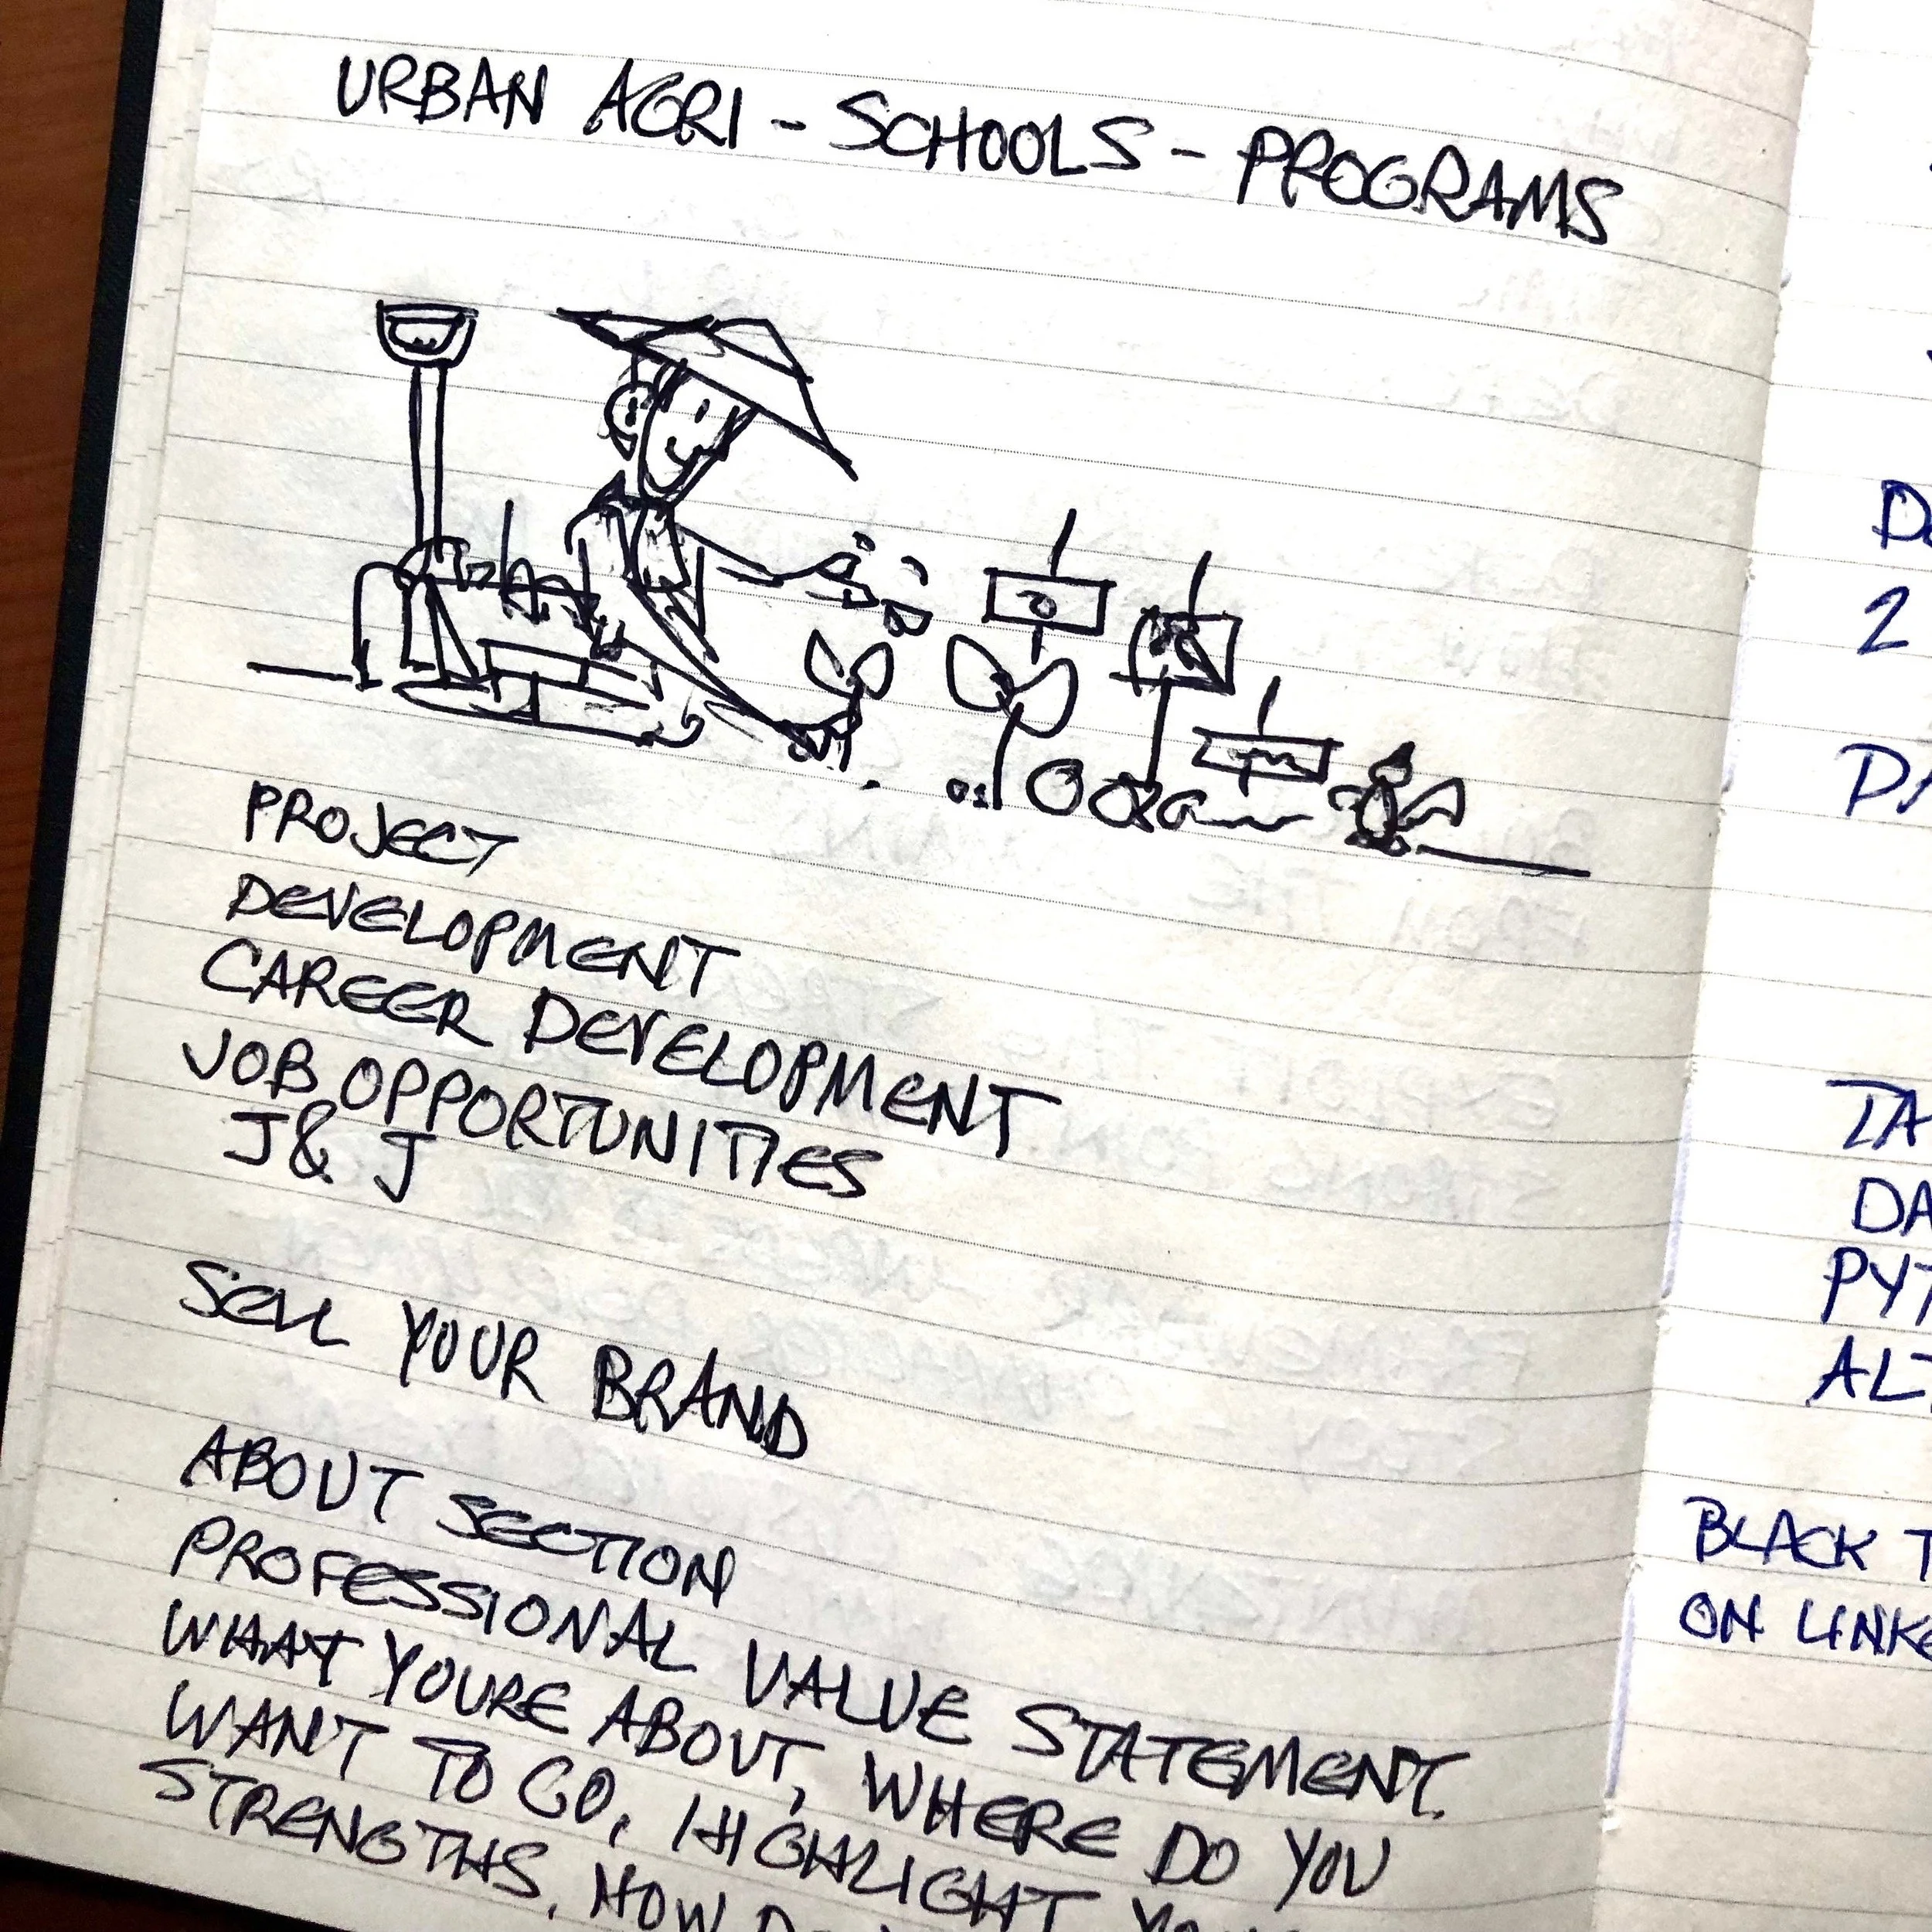 URBAN AGRI - SCHOOLS - PROGRAMS
PROJECT
DEVELOPMENT
CAREER DEVELOPMENT
JOB OPPORTUNITIES
J & J
SELL YOUR BRAND
ABOUT SECTION
PROFESSIONAL VALUE STATEMENT.
WHAT YOURE ABOUT, WHERE DO YOU
WANT TO GO, HIGHLIGHT YOUR
STRENGTHS, HOW DO
2
DA
TA
DA
PYT
ALT
BLACK T
ON LINKE